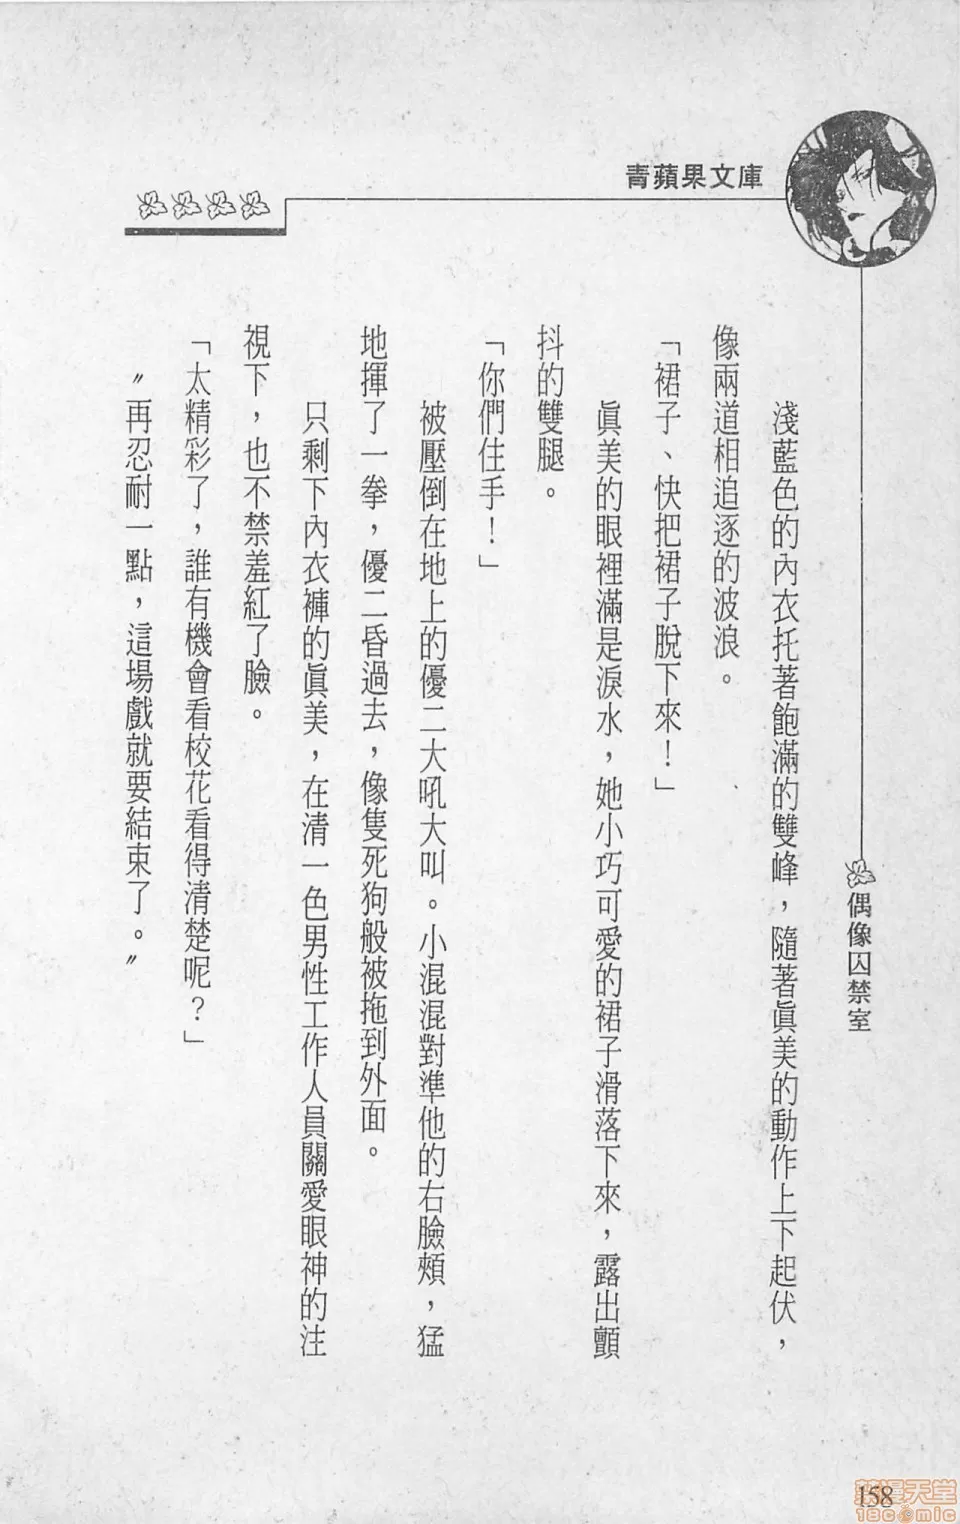 青蘋果文庫
偶像囚禁室
淺藍色的內衣托著飽滿的雙峰，隨著眞美的動作上下起伏，
像兩道相追逐的波浪。
「裙子、快把裙子脫下來！」
眞美的眼裡滿是淚水，她小巧可愛的裙子滑落下來，露出顫
抖的雙腿。
「你們住手！」
被壓倒在地上的優二大吼大叫。小混混對準他的右臉頰，猛
地揮了一拳，優二昏過去，像隻死狗般被拖到外面。
只剩下內衣褲的眞美，在清一色男性工作人員關愛眼神的注
視下，也不禁羞紅了臉。
「太精彩了，誰有機會看校花看得清楚呢？」
〝再忍耐一點，這場戲就要結束了。〞
158
禁漫天堂
18comic